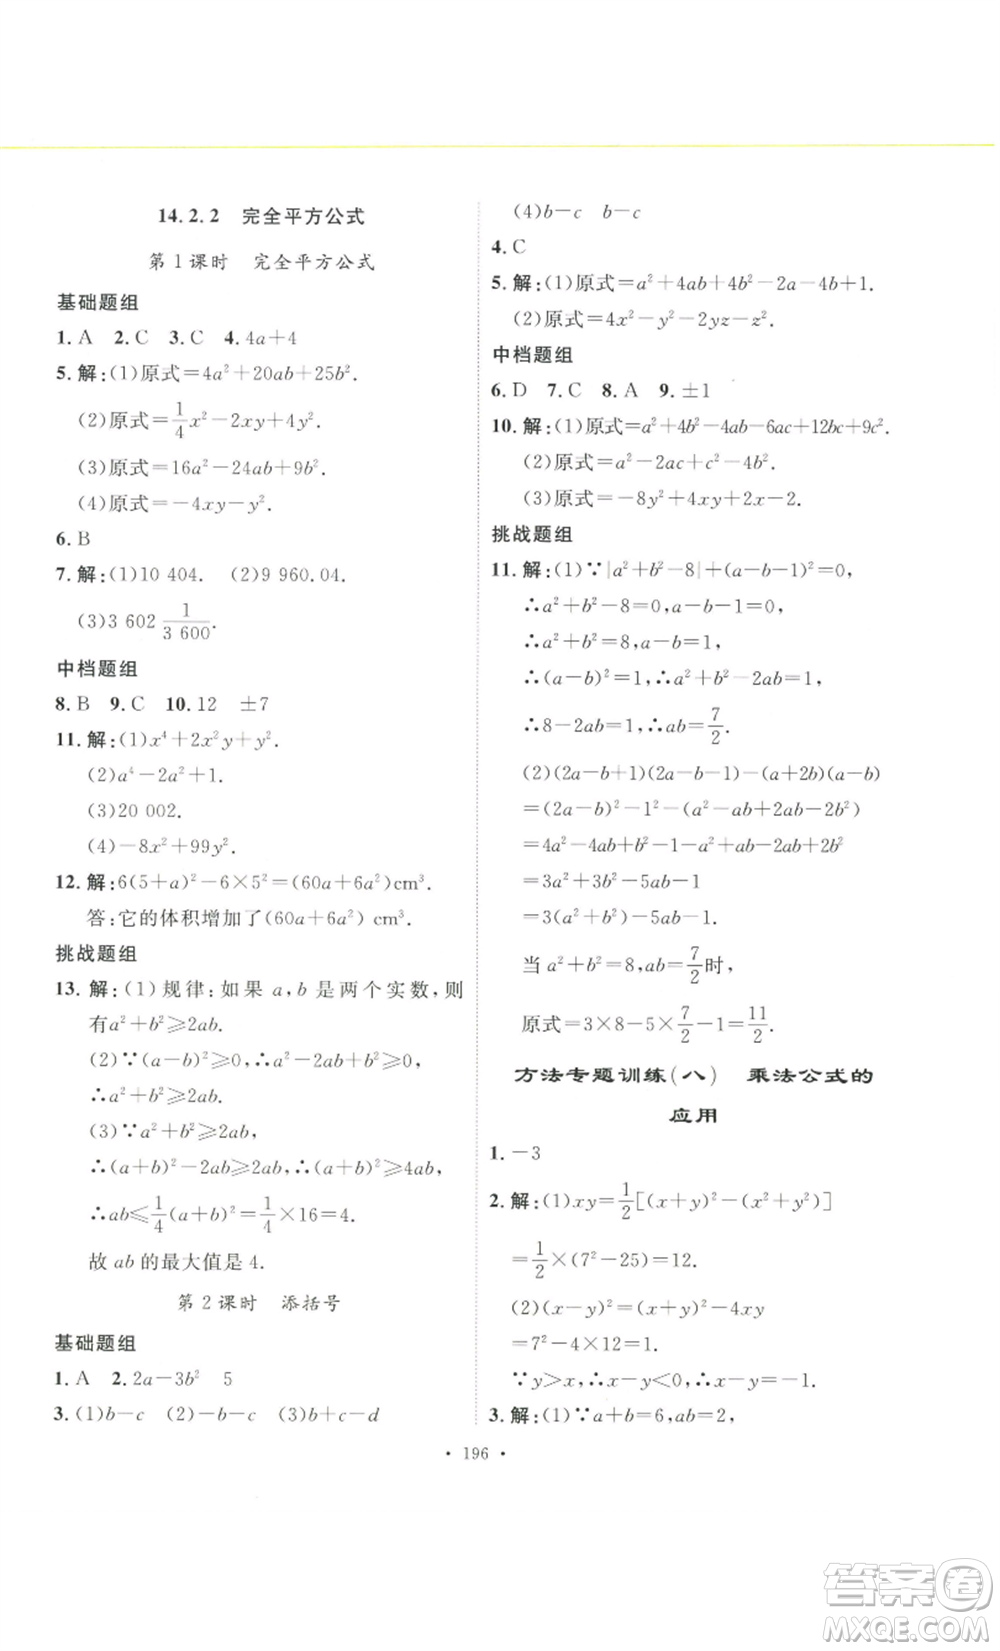 14.2.2 完全平方公式
第1课时 完全平方公式
基础题组
1. A 2. C 3. C 4. 4a+4
5. 解:(1)原式=4a²+20ab+25b².
(2)原式=1/4x²-2xy+4y².
(3)原式=16a²-24ab+9b².
(4)原式=-4xy-y².
6. B
7. 解:(1)10 404. (2)9 960.04.
(3)3 602 1/3 600.
中档题组
8. B 9. C 10. 12 ±7
11. 解:(1)x⁴+2x²y+y².
(2)a⁴-2a²+1.
(3)20 002.
(4)-8x²+99y².
12. 解:6(5+a)²-6×5²=(60a+6a²)cm³.
答:它的体积增加了(60a+6a²) cm³.
挑战题组
13. 解:(1)规律:如果 a,b 是两个实数,则
有a²+b²≥2ab.
(2)∵(a-b)²≥0,∴a²-2ab+b²≥0.
∴a²+b²≥2ab.
(3)∵a²+b²≥2ab,
∴(a+b)²-2ab≥2ab,∴(a+b)²≥4ab.
∴ab≤1/4(a+b)²=1/4×16=4.
故 ab 的最大值是 4.
第2课时 添括号
基础题组
1. A 2. 2a-3b² 5
3. (1)b-c (2)-b+c (3)b+c-d
(4)b-c b-c
4. C
5. 解:(1)原式=a²+4ab+4b²-2a-4b+1.
(2)原式=4x²-y²-2yz-z².
中档题组
6. D 7. C 8. A 9. ±1
10. 解:(1)原式=a²+4b²-4ab-6ac+12bc+9c².
(2)原式=a²-2ac+c²-4b².
(3)原式=-8y²+4xy+2x-2.
挑战题组
11. 解:(1)∵|a²+b²-8|+(a-b-1)²=0,
∴a²+b²-8=0,a-b-1=0,
∴a²+b²=8,a-b=1.
∴(a-b)²=1,∴a²+b²-2ab=1,
∴8-2ab=1,∴ab=7/2.
(2)(2a-b+1)(2a-b-1)-(a+2b)(a-b)
=(2a-b)²-1²-(a²-ab+2ab-2b²)
=4a²-4ab+b²-1-a²+ab-2ab+2b²
=3a²+3b²-5ab-1
=3(a²+b²)-5ab-1.
当a²+b²=8,ab=7/2时,
原式=3×8-5×7/2-1=11/2.
方法专题训练(八) 乘法公式的
应用
1. -3
2. 解:(1)xy=1/2[(x+y)²-(x²+y²)]
=1/2×(7²-25)=12.
(2)(x-y)²=(x+y)²-4xy
=7²-4×12=1.
∵y>x,∴x-y<0,∴x-y=-1.
3. 解:(1)∵a+b=6,ab=2,
• 196 •
答案卷
MXQE.COM